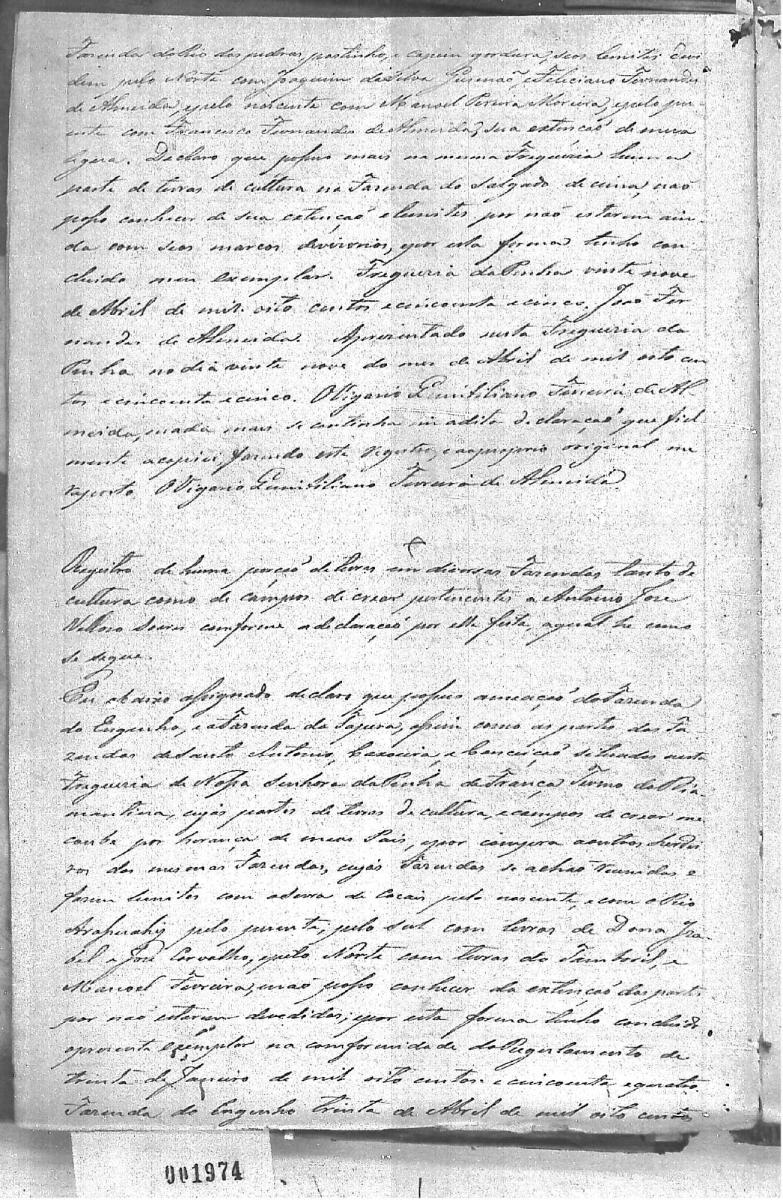 Fazenda do Rio das pedras, pastinho, e capim gordura, seos lemites devi
dem pelo Norte com Joaquim da Silva Gusmaõ, e Feliciano Fernandes
de Almeida, e pelo nascente com Manoel Pereira Moreira, e pelo pu-
ente com Francisco Fernandes de Almeida, sua extençaõ de meia
legoa. Declaro que possuo mais na mesma Fregueria huma
parte de terras de cultura na Fazenda do Salgado de cima, naõ
posso conhecer de sua extençaõ e lemites por naõ estarem ain-
da com seos marcos devizorios, e por esta forma tenho con-
cluido meu exemplar. Fregueria da Penha vinte nove
de Abril de mil oito centos e cincoenta e cinco. Joaõ Fer
nandes de Almeida. Aprezentado nesta Fregueria da
Penha no dia vinte nove do mes de Abril de mil oito cen
tos e cincoenta e cinco. O Vigario Emiliano Ferreira de Al-
meida, e nada mais se continha em a dita declaraçaõ que fiel
mente a copiei, fazendo este registro, e ao proprio original me
reporto. O Vigario Emiliano Ferreira de Almeida.
Registro de huma porcaõ de terras em diversas Fazendas tanto de
cultura como de campos de crear pertencentes a Antonio Jose
Velloso Soares conforme a declaraçaõ por elle feita, a qual he como
se segue.
Eu abaixo assignado declaro que possuo a meaçaõ da Fazenda
do Engenho, e a Fazenda da Tapera, assim como as partes das Fa
zendas de Santo Antonio, Caxoeira, e Conceiçaõ situadas nesta
Fregueria de Nossa Senhora da Penha de França Termo da Dia
mantina, cujas partes de terras de cultura, e campos de crear me
coube por herança de meus Pais, e por compra a outros herdei
ros das mesmas Fazendas, cujas Fazendas se achaõ reunidas e
fazem lemites com a Serra de Cocais pelo nascente, e com o Rio
Arassuahy pelo puente, pelo sul com terras de Dona Iza-
bel e José Carvalho, e pelo Norte com terras do Tamboril, e
Manoel Ferreira, e naõ posso conhecer da extençaõ das partes
por naõ estarem devedidas; e por esta forma tenho concluido
o prezente exemplar na comformidade do Regulamento de
trinta de Janeiro de mil oito centos e cincoenta e quatro.
Fazenda do Engenho trinta de Abril de mil oito centos
001974